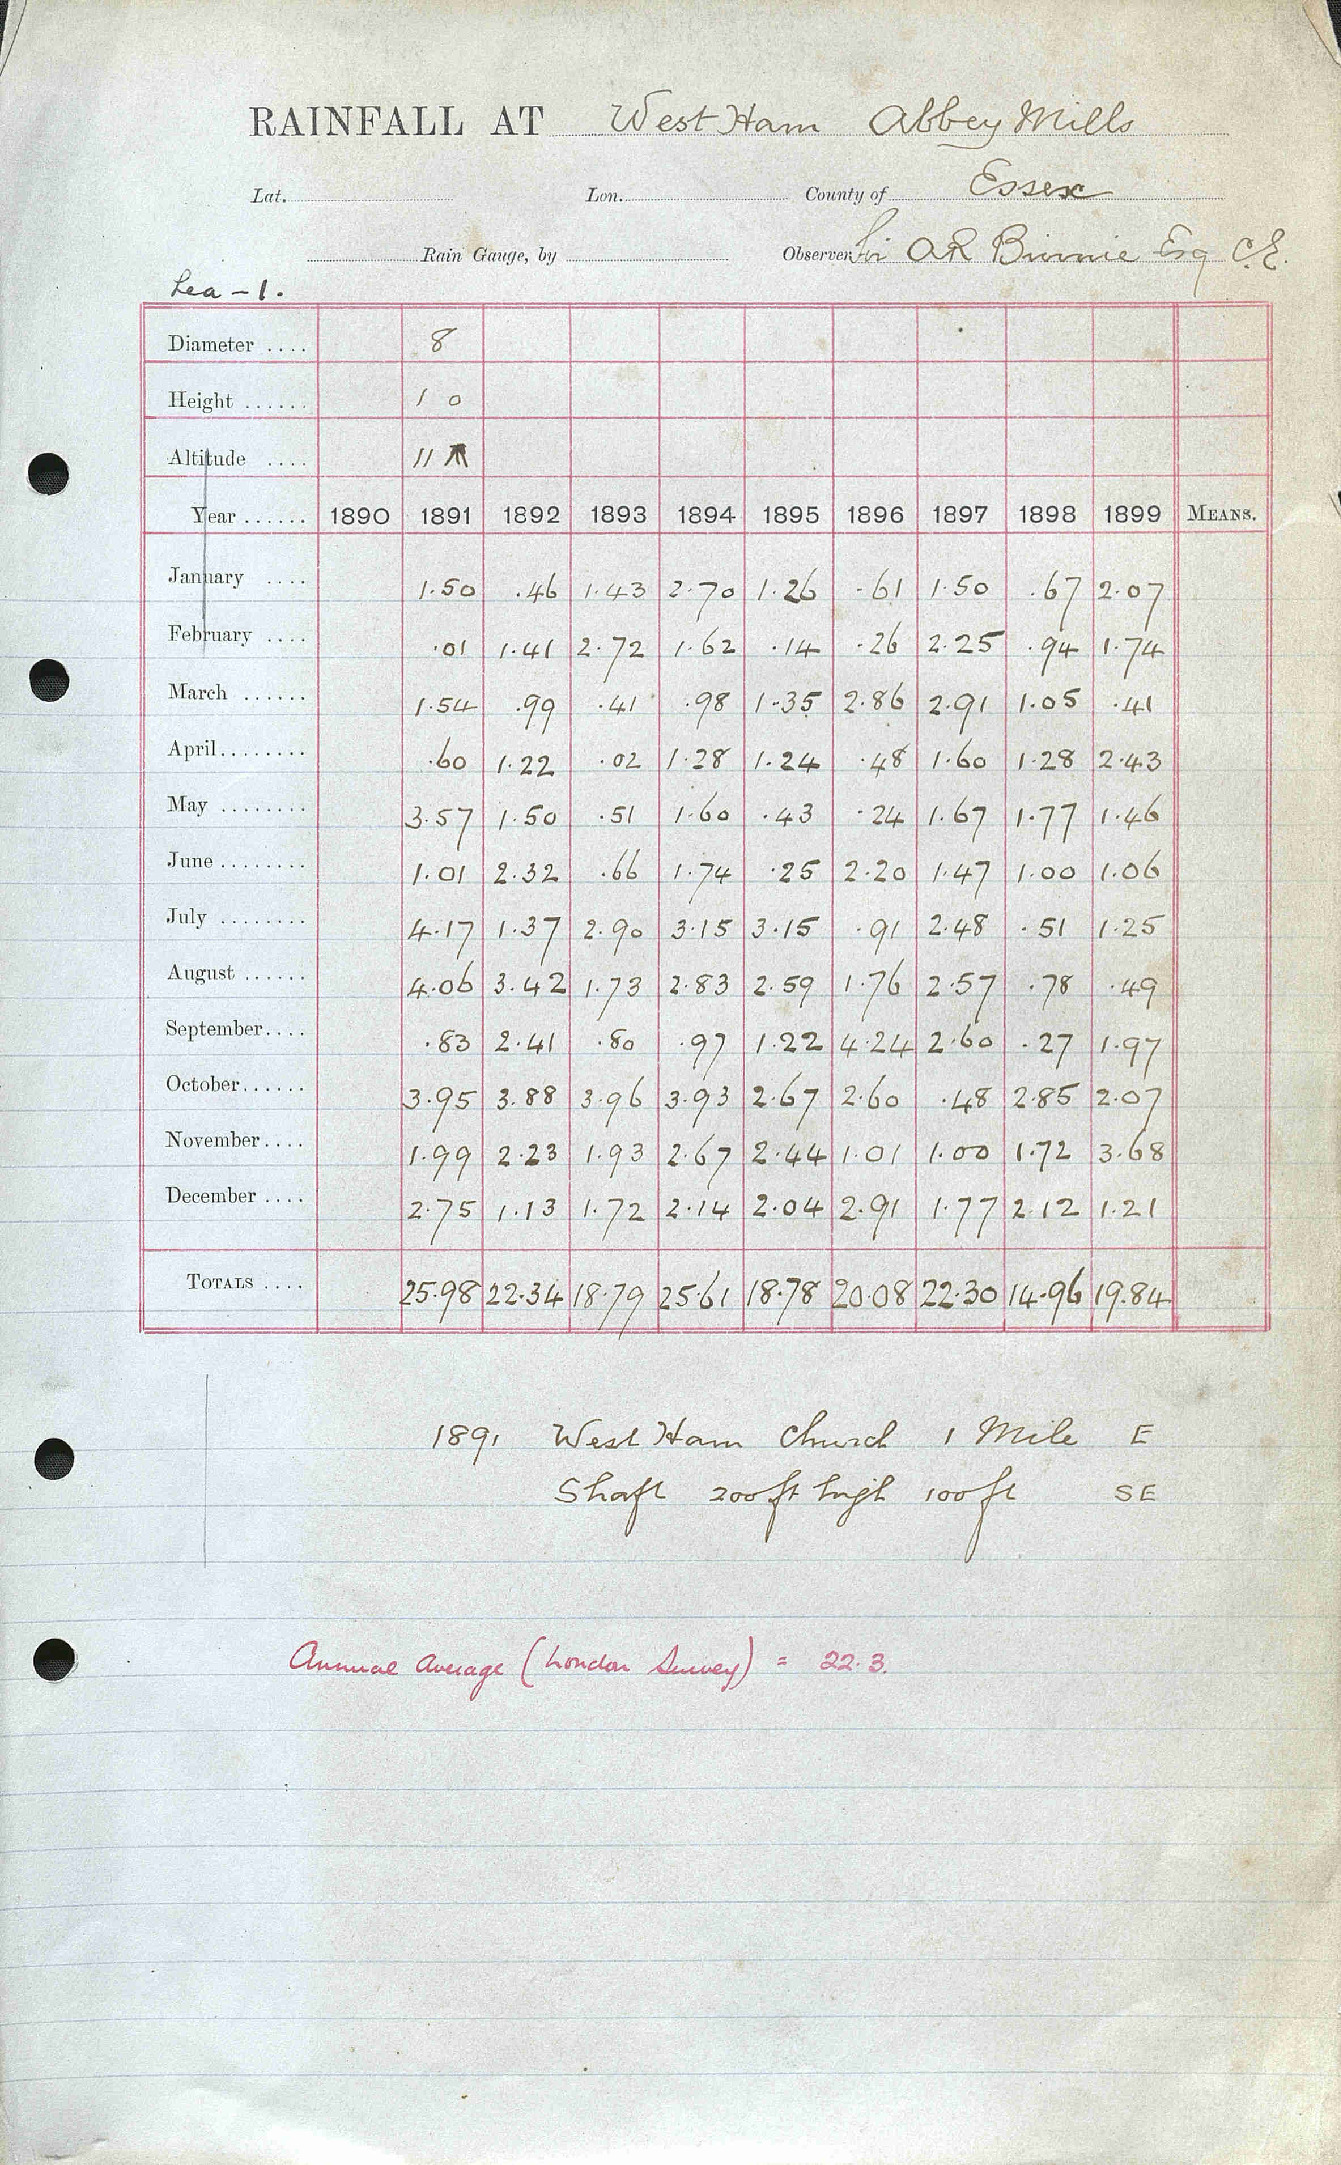 RAINFALL AT West Ham Abbey Mills
Lat. Lon. County of Essex
Rain Gauge, by Observer Sir A R Binnie Esq C.E.
Lea - 1.
Diameter .... 8
Height ...... 1 0
Altitude .... 11
Year ...... 1890 1891 1892 1893 1894 1895 1896 1897 1898 1899 MEANS.
January .... 1.50 .46 1.43 2.70 1.26 .61 1.50 .67 2.07
February .... .01 1.41 2.72 1.62 .14 .26 2.25 .94 1.74
March ...... 1.54 .99 .41 .98 1.35 2.86 2.91 1.05 .41
April ........ .60 1.22 .02 1.28 1.24 .48 1.60 1.28 2.43
May ........ 3.57 1.50 .51 1.60 .43 .24 1.67 1.77 1.46
June ........ 1.01 2.32 .66 1.74 .25 2.20 1.47 1.00 1.06
July ........ 4.17 1.37 2.90 3.15 3.15 .91 2.48 .51 1.25
August ...... 4.06 3.42 1.73 2.83 2.59 1.76 2.57 .78 .49
September.... .83 2.41 .80 .97 1.22 4.24 2.60 .27 1.97
October...... 3.95 3.88 3.96 3.93 2.67 2.60 .48 2.85 2.07
November.... 1.99 2.23 1.93 2.67 2.44 1.01 1.00 1.72 3.68
December .... 2.75 1.13 1.72 2.14 2.04 2.91 1.77 2.12 1.21
TOTALS .... 25.98 22.34 18.79 25.61 18.78 20.08 22.30 14.96 19.84
1891 West Ham Church 1 Mile E
Shaft 200ft high 100ft SE
Annual Average (London Survey) = 22.3.